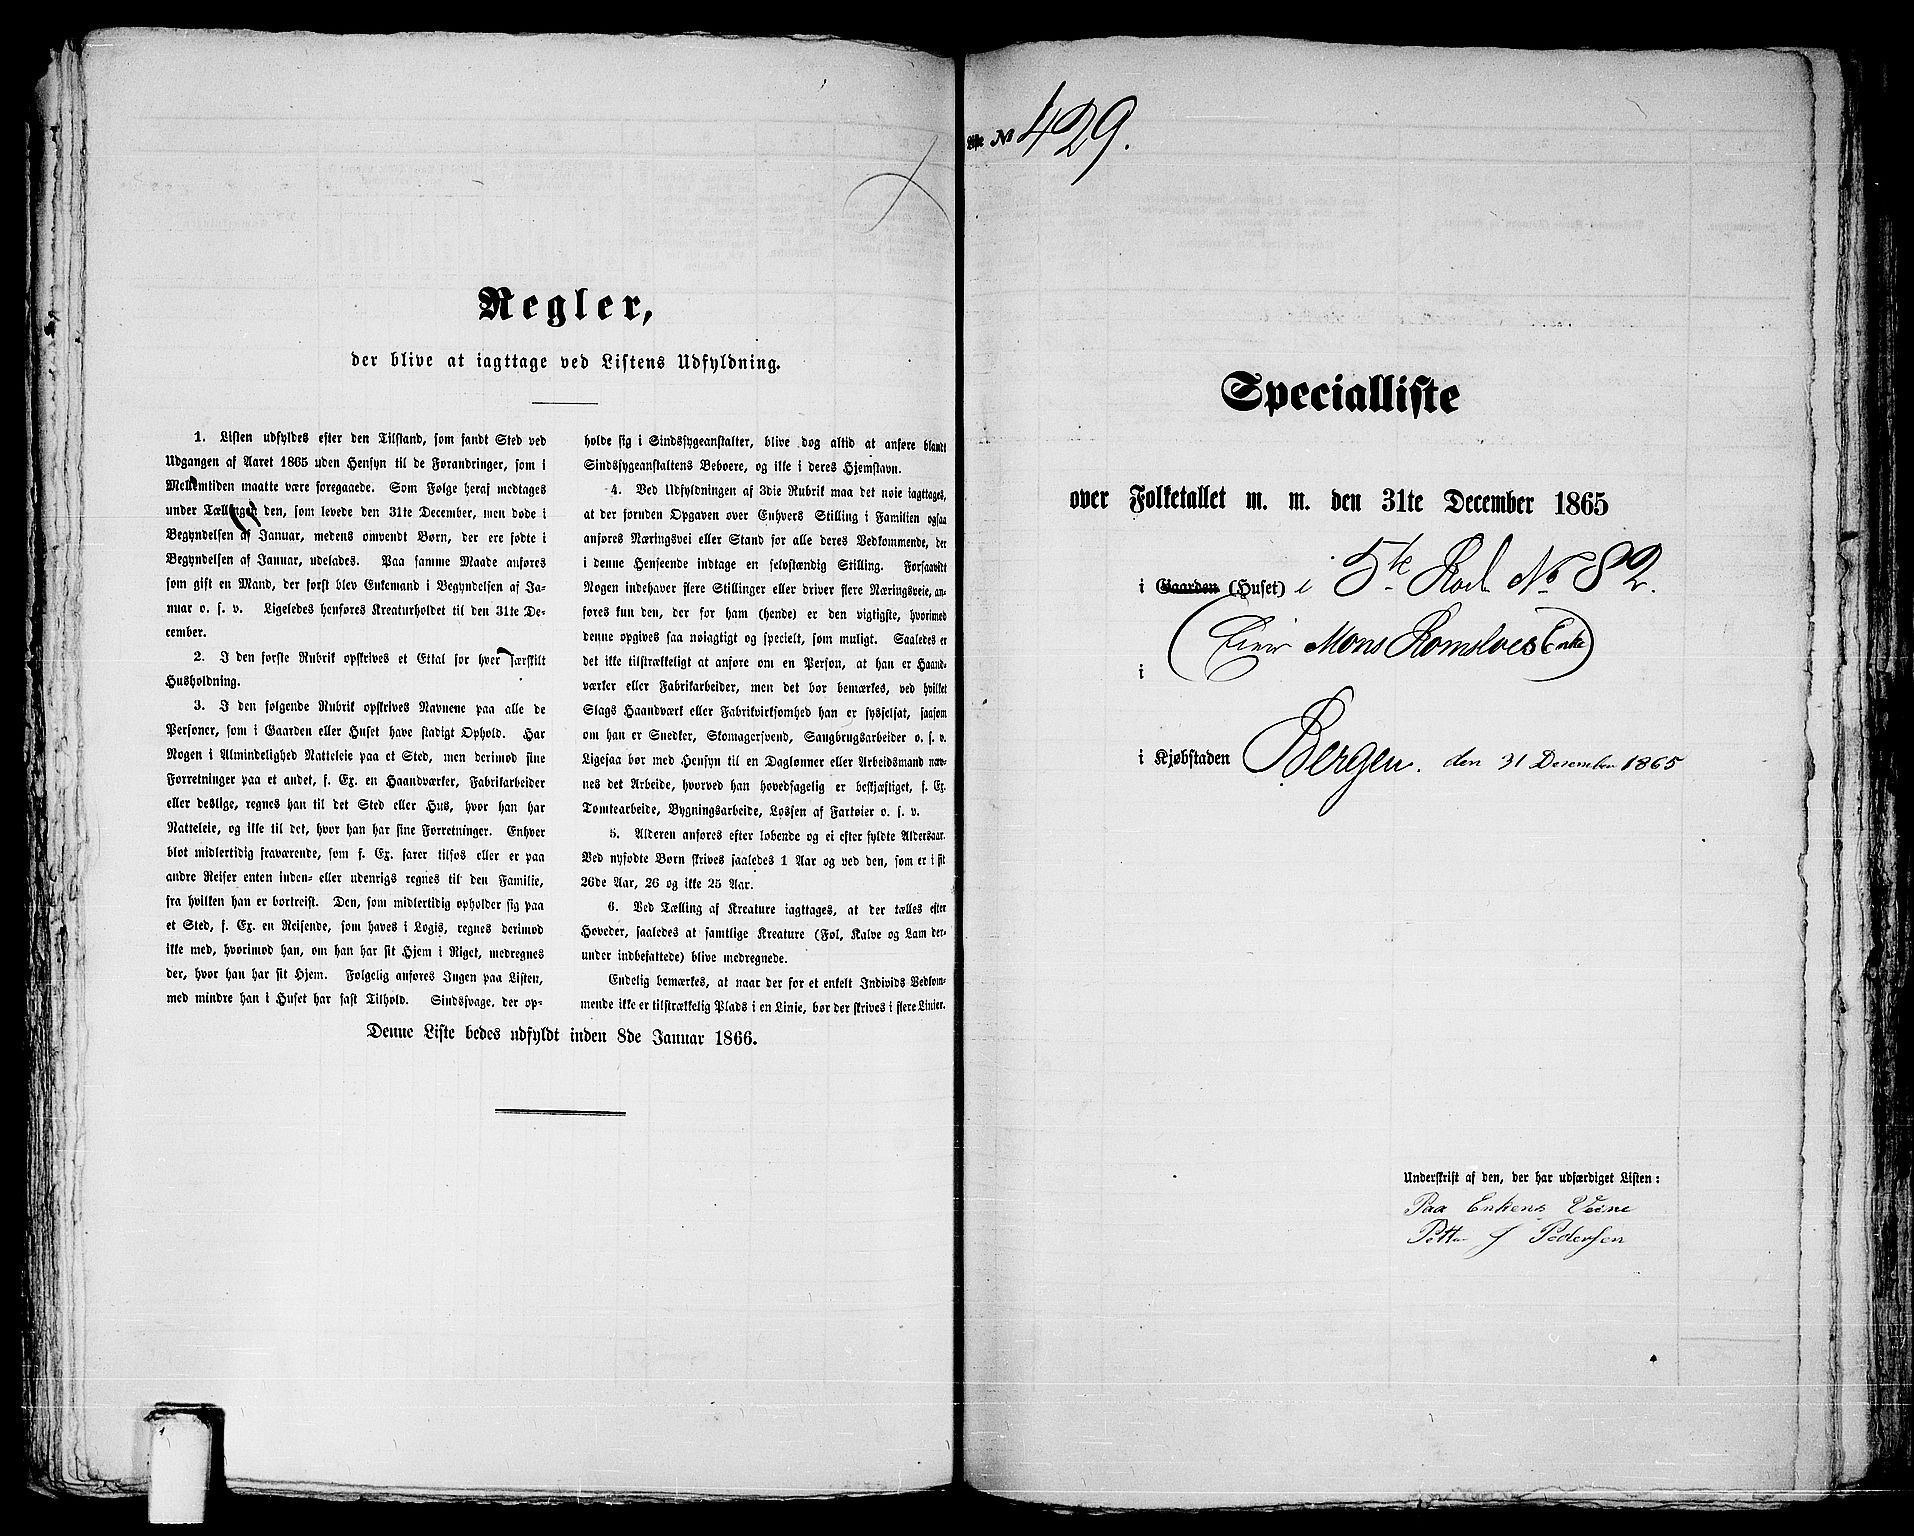 Regler,
der blive at iagttage ved Listens Udfyldning.
1. Listen udfyldes efter den Tilstand, som fandt Sted ved
Udgangen af Aaret 1865 uden Hensyn til de Forandringer, som i
Mellemtiden maatte være foregaaede. Som Følge heraf medtages
under Tællingen den, som levede den 31te December, men døde i
Begyndelsen af Januar, medens omvendt Børn, der ere fødte i
Begyndelsen af Januar, udelades. Paa samme Maade anføres
som gift en Mand, der først blev Enkemand i Begyndelsen af Ja-
nuar o. s. v. Ligeledes henføres Kreaturholdet til den 31te De-
cember.
2. I den første Rubrik opskrives et Ettal for hver særskilt
Husholdning.
3. I den følgende Rubrik opskrives Navnene paa alle de
Personer, som i Gaarden eller Huset have stadigt Ophold. Har
Nogen i Almindelighed Natteleie paa et Sted, men derimod sine
Forretninger paa et andet, f. Ex. en Haandværker, Fabrikarbeider
eller deslige, regnes han til det Sted eller Hus, hvor han har
Natteleie, og ikke til det, hvor han har sine Forretninger. Enhver
blot midlertidig fraværende, som f. Ex. farer tilsøs eller er paa
andre Reiser enten inden- eller udenrigs regnes til den Familie,
fra hvilken han er bortreist. Den, som midlertidig opholder sig paa
et Sted, f. Ex. en Reisende, som haves i Logis, regnes derimod
ikke med, hvorimod han, om han har sit Hjem i Riget, medregnes
der, hvor han har sit Hjem. Følgelig anføres Ingen paa Listen,
med mindre han i Huset har fast Tilhold. Sindssvage, der op-
holde sig i Sindssygeanstalter, blive dog altid at anføre blandt
Sindssygeanstaltens Beboere, og ikke i deres Hjemstavn.
4. Ved Udfyldningen af 3die Rubrik maa det nøie iagttages,
at der foruden Opgaven over Enhvers Stilling i Familien ogsaa
anføres Næringsvei eller Stand for alle deres Vedkommende, der
i denne Henseende indtage en selvstændig Stilling. Forsaavidt
Nogen indehaver flere Stillinger eller driver flere Næringsveie, an-
føres kun den, der for ham (hende) er den vigtigste, hvorimod
denne opgives saa nøiagtigt og specielt, som muligt. Saaledes er
det ikke tilstrækkeligt at anføre om en Person, at han er Haand-
værker eller Fabrikarbeider, men det bør bemærkes, ved hvilket
Slags Haandværk eller Fabrikvirksomhed han er sysselsat, saasom
om han er Snedker, Skomagersvend, Saugbrugsarbeider o. s. v.
Ligesaa bør med Hensyn til en Daglønner eller Arbeidsmand næv-
nes det Arbeide, hvorved han hovedsagelig er beskjæftiget, f. Ex.
Tomtearbeide, Bygningsarbeide, Losjen af Fartøier o. s. v.
5. Alderen anføres efter løbende og ei efter fyldte Aldersaar.
Ved nyfødte Børn skrives saaledes 1 Aar og ved den, som er i sit
26de Aar, 26 og ikke 25 Aar.
6. Ved Tælling af Kreature iagttages, at der tælles efter
Hoveder, saaledes at samtlige Kreature (Føl, Kalve og Lam der-
under indbefattede) blive medregnede.
Endelig bemærkes, at naar der for et enkelt Individs Vedkom-
mende ikke er tilstrækkelig Plads i en Linie, bør der skrives i flere Linier.
Denne Liste bedes udfyldt inden 8de Januar 1866.
Liste № 429.
Specialliste
over Folketallet m. m. den 31te December 1865
i Gaarden (Huset) i 5te Rod No 82.
( Mons Romslves Enke)
i
i Kjøbstaden Bergen. den 31 December 1865
Underskrift af den, der har udfærdiget Listen:
Paa Enkens Veine
Petter J Pedersen